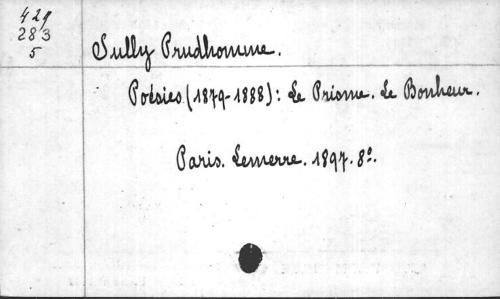 429
283
5
Sully Prudhomme.
Poésies (1879-1888): Le Prisme. Le Bonheur.
Paris. Lemerre. 1897. 8º.